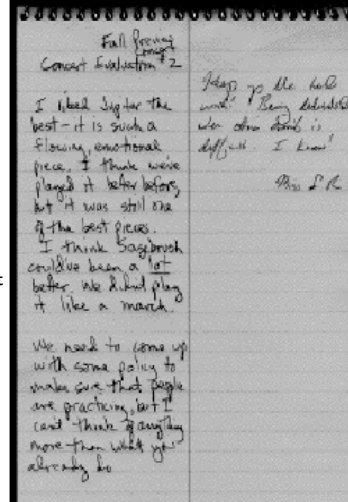 Fall Preview
Concert
Concert Evaluation #2
I liked Jupiter the
best - it is such a
flowing, emotional
piece. I think we've
played it better before,
but it was still one
of the best pieces.
I think Sagebrush
could've been a lot
better. We didn't play
it like a march.
We need to come up
with some policy to
make sure that people
are practicing, but I
can't think of anything
more than what you
already do
Keep up the hard
work! Being
is
I know!